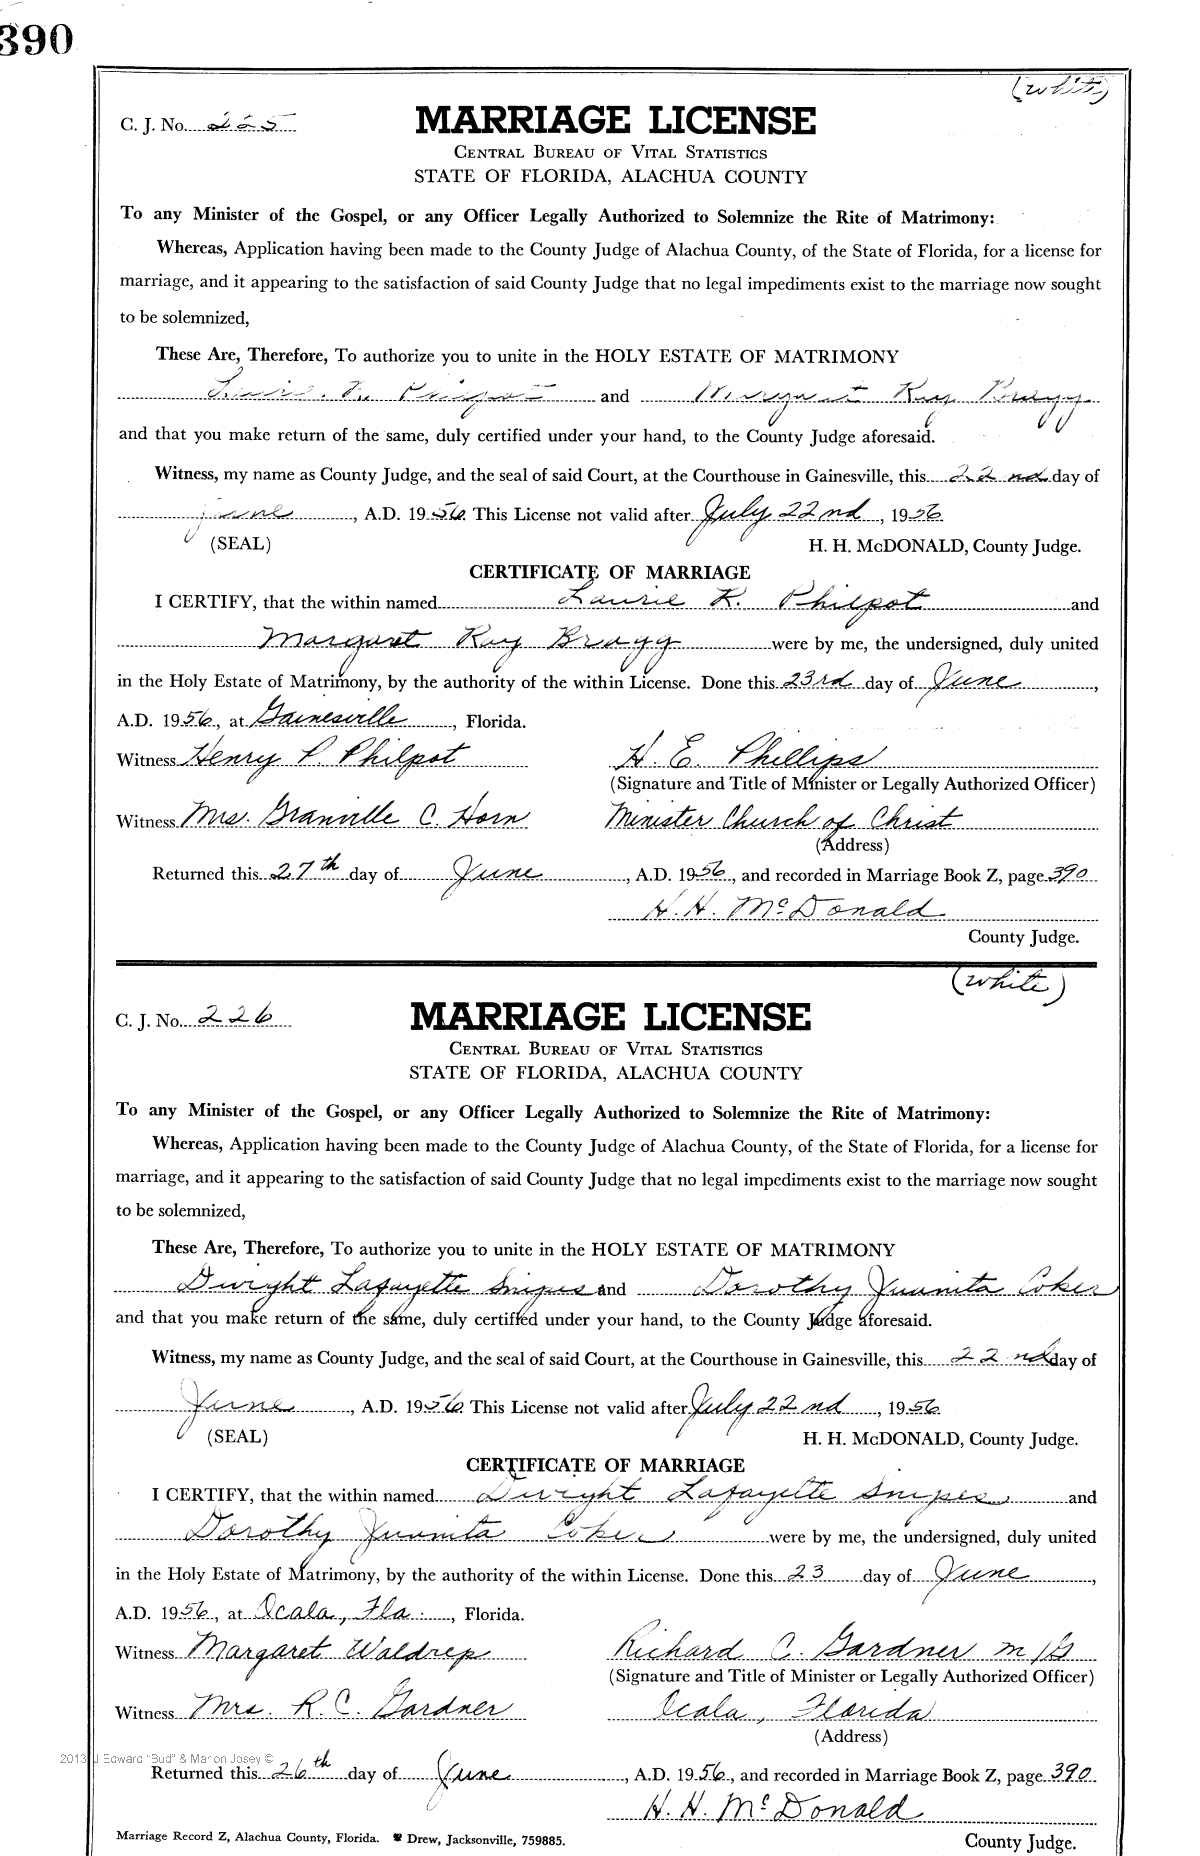 390
(white)
C. J. No. 225
MARRIAGE LICENSE
CENTRAL BUREAU OF VITAL STATISTICS
STATE OF FLORIDA, ALACHUA COUNTY
To any Minister of the Gospel, or any Officer Legally Authorized to Solemnize the Rite of Matrimony:
Whereas, Application having been made to the County Judge of Alachua County, of the State of Florida, for a license for
marriage, and it appearing to the satisfaction of said County Judge that no legal impediments exist to the marriage now sought
to be solemnized,
These Are, Therefore, To authorize you to unite in the HOLY ESTATE OF MATRIMONY
Laurie R. Philpot and Margaret Kay Bragg
and that you make return of the same, duly certified under your hand, to the County Judge aforesaid.
Witness, my name as County Judge, and the seal of said Court, at the Courthouse in Gainesville, this 22nd day of
June, A.D. 1956. This License not valid after July 22nd, 1956
(SEAL) H. H. McDONALD, County Judge.
CERTIFICATE OF MARRIAGE
I CERTIFY, that the within named Laurie R. Philpot and
Margaret Kay Bragg were by me, the undersigned, duly united
in the Holy Estate of Matrimony, by the authority of the within License. Done this 23rd day of June,
A.D. 1956, at Gainesville, Florida.
Witness Henry P. Philpot H. E. Phillips
(Signature and Title of Minister or Legally Authorized Officer)
Witness Mrs. Granville C. Horn Minister Church of Christ
(Address)
Returned this 27th day of June, A.D. 1956, and recorded in Marriage Book Z, page 390
H. H. McDonald
County Judge.
(white)
C. J. No. 226
MARRIAGE LICENSE
CENTRAL BUREAU OF VITAL STATISTICS
STATE OF FLORIDA, ALACHUA COUNTY
To any Minister of the Gospel, or any Officer Legally Authorized to Solemnize the Rite of Matrimony:
Whereas, Application having been made to the County Judge of Alachua County, of the State of Florida, for a license for
marriage, and it appearing to the satisfaction of said County Judge that no legal impediments exist to the marriage now sought
to be solemnized,
These Are, Therefore, To authorize you to unite in the HOLY ESTATE OF MATRIMONY
Dwight Lafayette Snipes and Dorothy Juanita Coker
and that you make return of the same, duly certified under your hand, to the County Judge aforesaid.
Witness, my name as County Judge, and the seal of said Court, at the Courthouse in Gainesville, this 22nd day of
June, A.D. 1956 This License not valid after July 22nd, 1956
(SEAL) H. H. McDONALD, County Judge.
CERTIFICATE OF MARRIAGE
I CERTIFY, that the within named Dwight Lafayette Snipes and
Dorothy Juanita Coker were by me, the undersigned, duly united
in the Holy Estate of Matrimony, by the authority of the within License. Done this 23 day of June,
A.D. 1956, at Ocala, Fla., Florida.
Witness Margaret Waldrep Richard C. Gardner M/G
(Signature and Title of Minister or Legally Authorized Officer)
Witness Mrs. R. C. Gardner Ocala, Florida
(Address)
2013 J Edward "Bud" & Marion Josey ©
Returned this 26th day of June, A.D. 1956, and recorded in Marriage Book Z, page 390
H. H. McDonald
Marriage Record Z, Alachua County, Florida. Drew, Jacksonville, 759885.
County Judge.